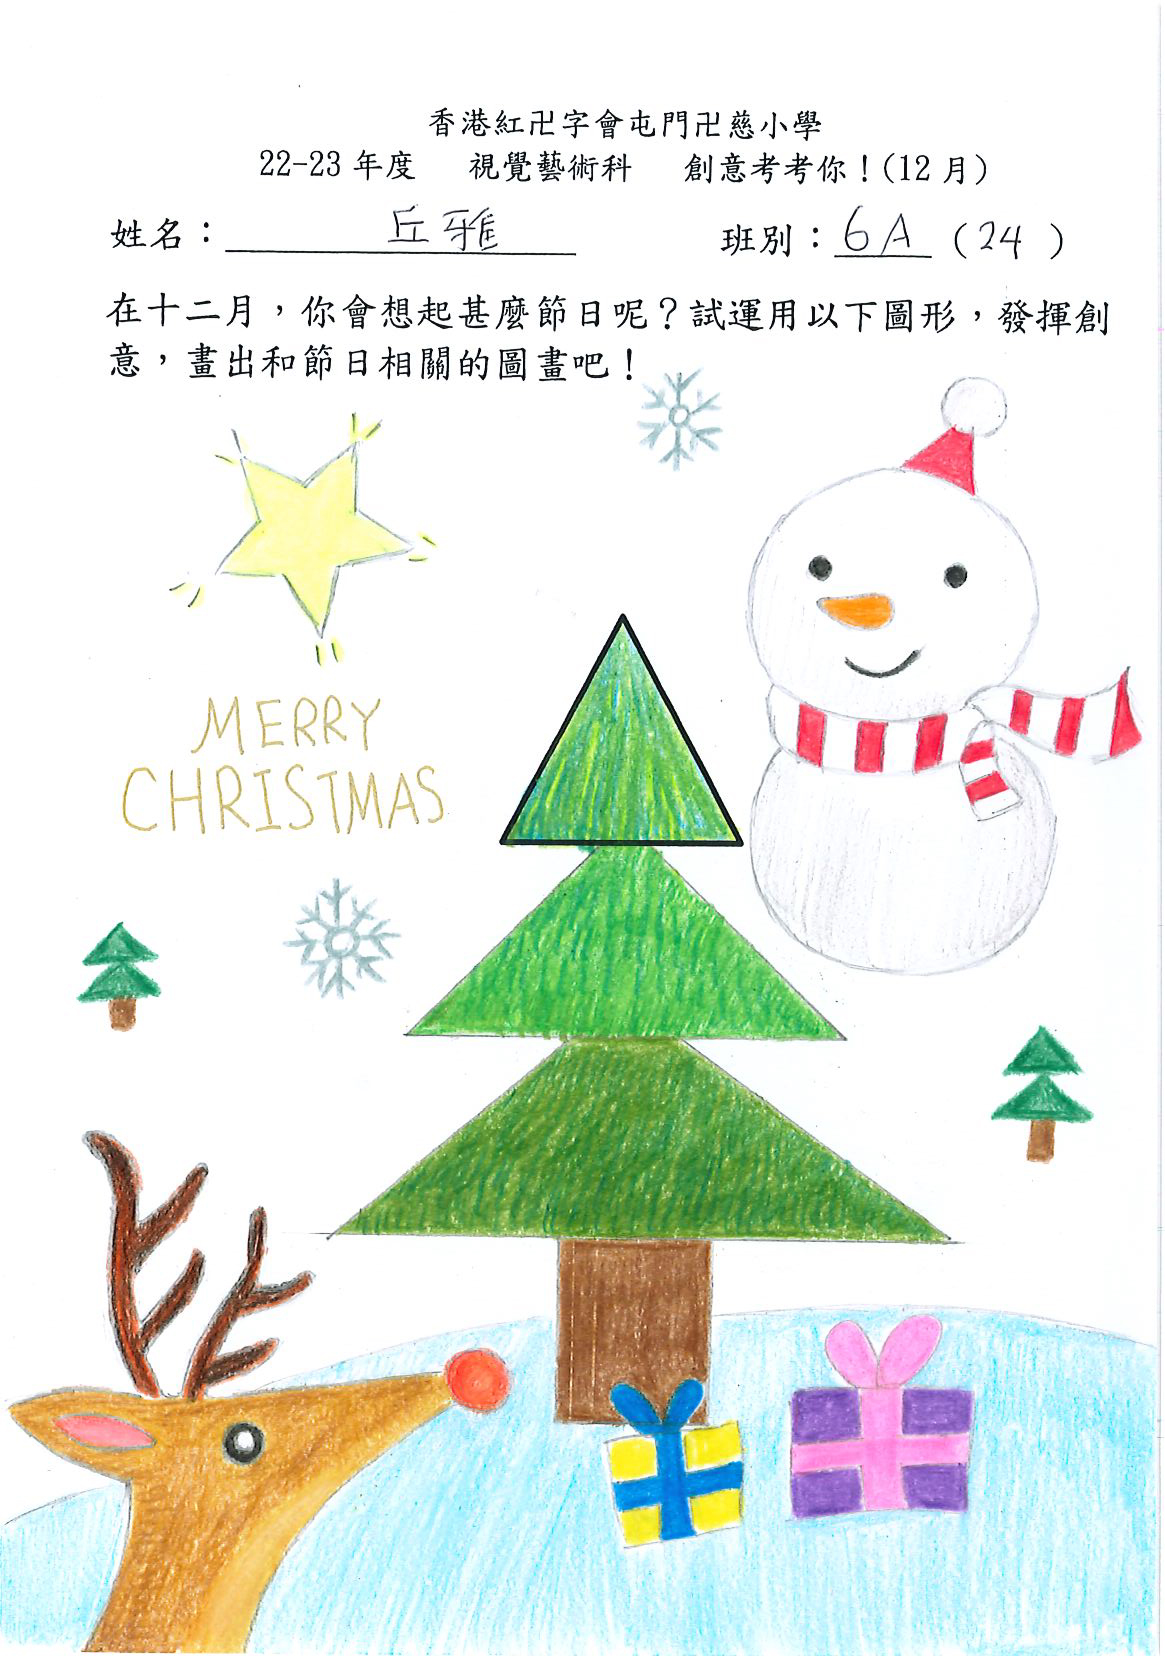 香港紅卍字會屯門卍慈小學
22-23 年度 視覺藝術科 創意考考你！(12 月)
姓名：丘雅 班別：6A (24 )
在十二月，你會想起甚麼節日呢？試運用以下圖形，發揮創
意，畫出和節日相關的圖畫吧！
MERRY
CHRISTMAS